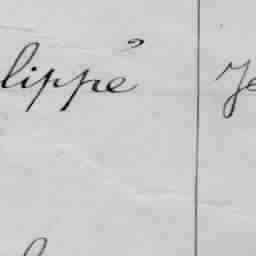 lippe Je